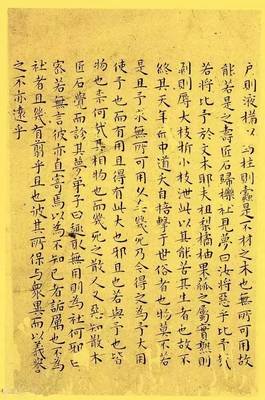 戶則液樠以為柱則蠹是不材之木也無所可用故
能若是之壽匠石歸櫟社見夢曰汝將惡乎比予哉
若將比予於文木耶夫柤梨橘柚果蓏之屬實熟則
剝則辱大枝折小枝泄此以其能苦其生者也故不
終其天年而中道夭自掊擊于世俗者也物莫不若
是且予求無所可用久矣幾死乃今得之為予大用
使予也而有用且得有此大也邪且也若與予也皆
物也柰何哉其相物也而幾死之散人又惡知散木
匠石覺而診其夢弟子曰趣取無用則為社何耶曰
密若無言彼亦直寄焉以為不知己者詬厲也不為
社者且幾有翦乎且也彼其所保與衆異而以義譽
之不亦遠乎